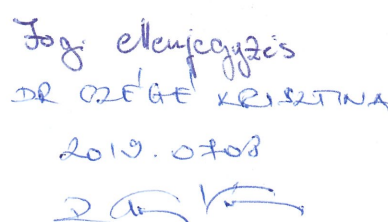 Jogi ellenjegyzés
DR CZÉGÉ KRISZTINA
2019.0708